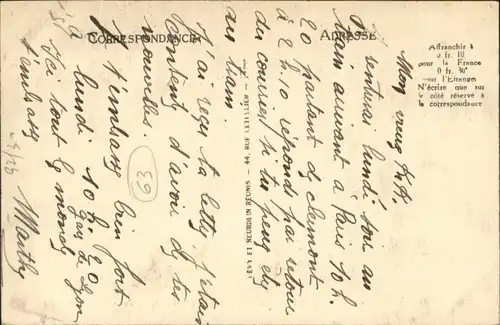 CORRESPONDANCE
ADRESSE
Affranchir à
0 fr. 10
pour la France
0 fr. 30
pour l'Etranger
N'écrire que sur
le côté réservé à
la correspondance
LÉVY ET NEURDEIN RÉUNIS - 44, RUE LETELLIER
Mon vieux
Je rentrerai lundi soir au
train arrivant à Paris 10 h.
20 partant de Clermont
à 2 h. 10 répond par retour
du courrier si tu peux
au train.
J'ai reçu ta lettre j'étais
contente d'avoir de tes
nouvelles.
t'embrasse bien fort
lundi 10 h. 20
gare de Lyon
Ici tout le monde
t'embrasse
Marthe
39